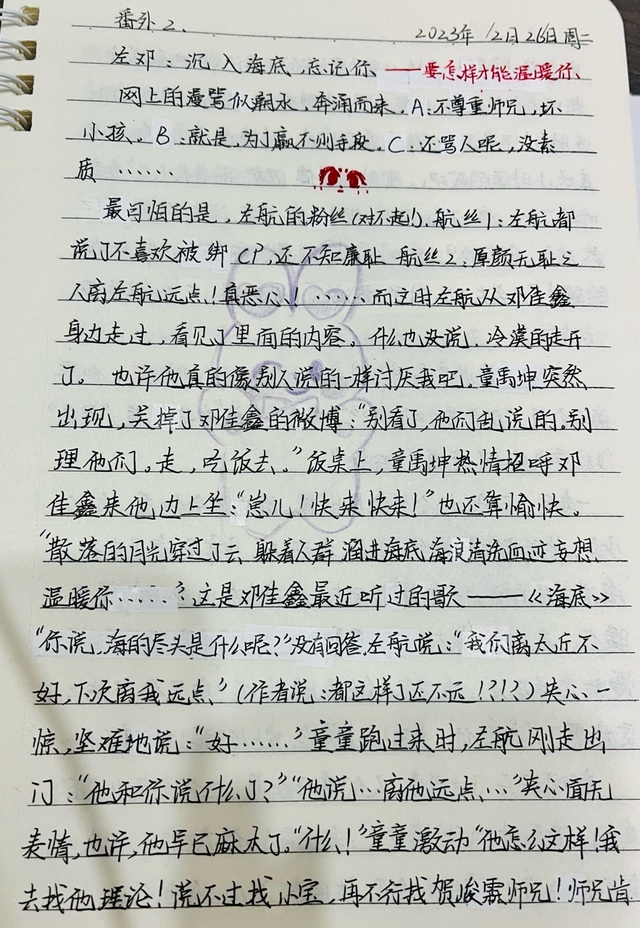 番外2、
2023年12月26日周二
左邓：沉入海底，忘记你 ——要怎样才能温暖你、
网上的谩骂似潮水，奔涌而来，A：不尊重师兄，坏
小孩。B：就是，为了赢不则手段，C：还骂人呢，没素
质……
最可怕的是，左航的粉丝(对不起!)、航丝1：左航都
说了不喜欢被绑CP，还不知廉耻 航丝2、原颜无耻之
人离左航远点!真恶心!……而这时左航从邓佳鑫
身边走过，看见了里面的内容，什么也没说，冷漠的走开
了。也许他真的像别人说的一样讨厌我吧，童禹坤突然
出现，关掉了邓佳鑫的微博："别看了，他们乱说的，别
理他们。走，吃饭去。"饭桌上，童禹坤热情招呼邓
佳鑫来他边上坐："崽儿!快来快来!"也还算愉快。
"散落的月光穿过了云 躲着人群 溜进海底 海浪清洗血迹 妄想
温暖你……"这是邓佳鑫最近听过的歌——《海底》
"你说，海的尽头是什么呢?"没有回答，左航说："我们离太近不
好，下次离我远点、"(作者说：都这样了还不远!?!?)夹心一
惊，坚难地说："好……"童童跑过来时，左航刚走出
门："他和你说什么了?""他说…离他远点…"夹心面无
表情，也许，他早已麻木了。"什么!"童童激动"他怎么这样!我
去找他理论!说不过找小宝，再不行找贺峻霖师兄!师兄肯